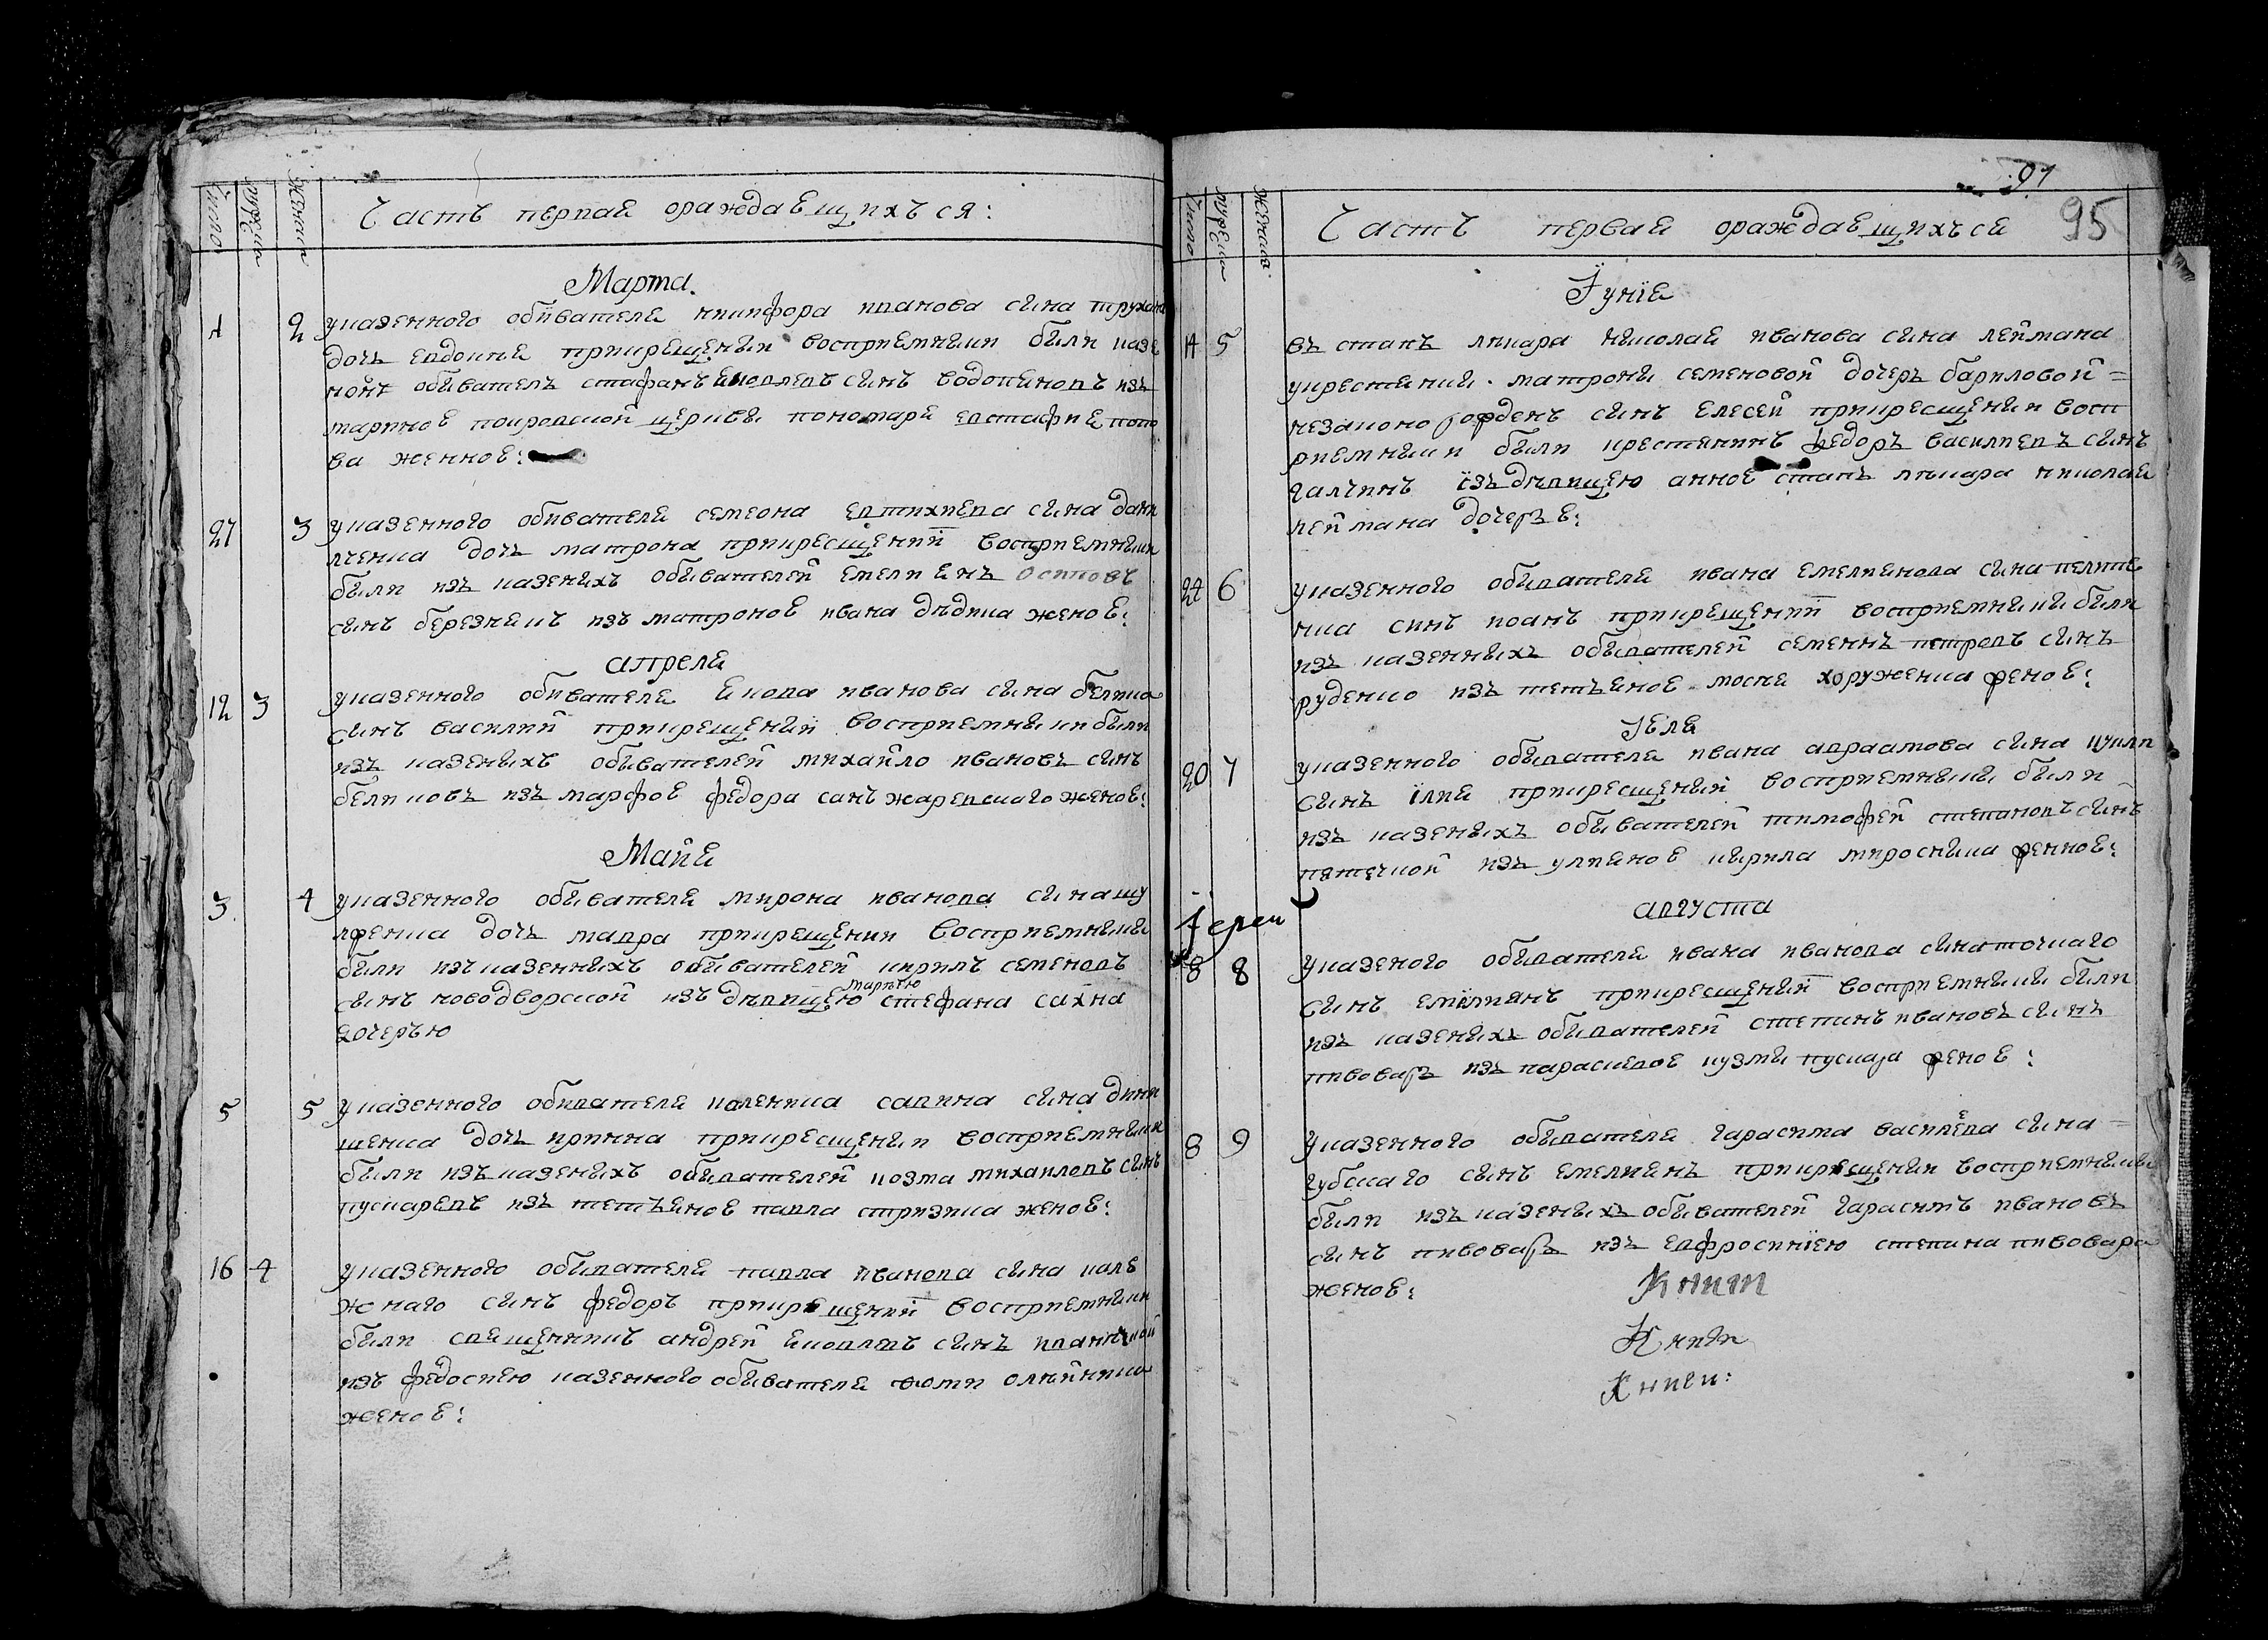 Число
мужеска
женска
Часть первая ораждаещихъся:
Марта.
1 2 указенного обивателя никифора иванова сына трухана
дочъ евдокия прикрещении восприемники были казе
ной обиватель стафанъ яковлевъ сынъ водопяновъ изъ
мариное покровской церкви пономаря евстафие попо
ва женное:
27 3 указенного обивателя семеона евтихиева сына дани
лченка дочъ матрона прикресщении восприемники
были изъ казеныхъ обывателей емелиянъ осиповъ
сынъ березнякъ изъ матроное ивана дядика женое:
апреля
12 3 указенного обивателя якова иванова сына белика
сынъ василий прикрещении восприемники были
изъ казеныхъ обывателей михайло ивановъ сынъ
беликовъ изъ марфое федора санжаревского женое:
Майя
3. 4 указенного обивателя мирона иванова сына шу
дочъ мавра прикрещении восприемники
были изъ казенныхъ обывателей кирилъ семеновъ
марѣю
сынъ новодворской изъ дѣвицею стефана сахна
дочерью
5 5 указенного обивателя савина сына дини
шенка дочъ иринна прикресщении восприемники
были изъ казеныхъ обывателей козма михаиловъ сынъ
пускаревъ изъ тетъяное павла стризика женое:
16 4 указенного обывателя павла иванова сына кале
жного сынъ федоръ прикрещении восприемники
были священникъ андрей яковлевъ сынъ
изъ федосиею казенного обывателя фоми олейника
женое:
91
95
Число
мужеска
женска
Частъ первая ораждаещихъся
Їунїя
14 5 въ стапъ лѣкара николая иванова сына леймана
укрестяний матрони семеновой дочеръ бариловой =
незаконо рожденъ сынъ елесей прикресщении восп
риемники были крестянинъ федоръ василиевъ сынъ
галчинъ їзъ дѣвицею анное стапъ лѣкара николая
леймана дочеръе:
24 6 указенного обывателя ивана емелиянова сына пелипе
нка синъ иоанъ прикрещении восприемники были
изъ казенныхъ обывателей семенъ петровъ сынъ
руденко изъ тетъяное мосия хоруженка женое:
Їюля
20 7 указенного обывателя ивана авраамова сына
сынъ їлия прикресщении восприемники были
изъ казеныхъ обывателей тимофей степановъ сынъ
изъ улияное кирила мирошника женное:
августа
їереи
8 8 указеного обывателя ивана иванова сына точкаго
сынъ емїлиянъ прикресщении восприемники были
изъ казеныхъ обывателей степинъ ивановъ сынъ
пивоваръ изъ параскевое кузми пускара женое:
8 9 указенного обывателя гарасима василева сына =
губского сынъ емелиянъ прикрещении восприемники
были изъ казеныхъ обывателей гарасимъ ивановъ
сынъ пивоваръ изъ евфросинїею степина пивовара
женое: